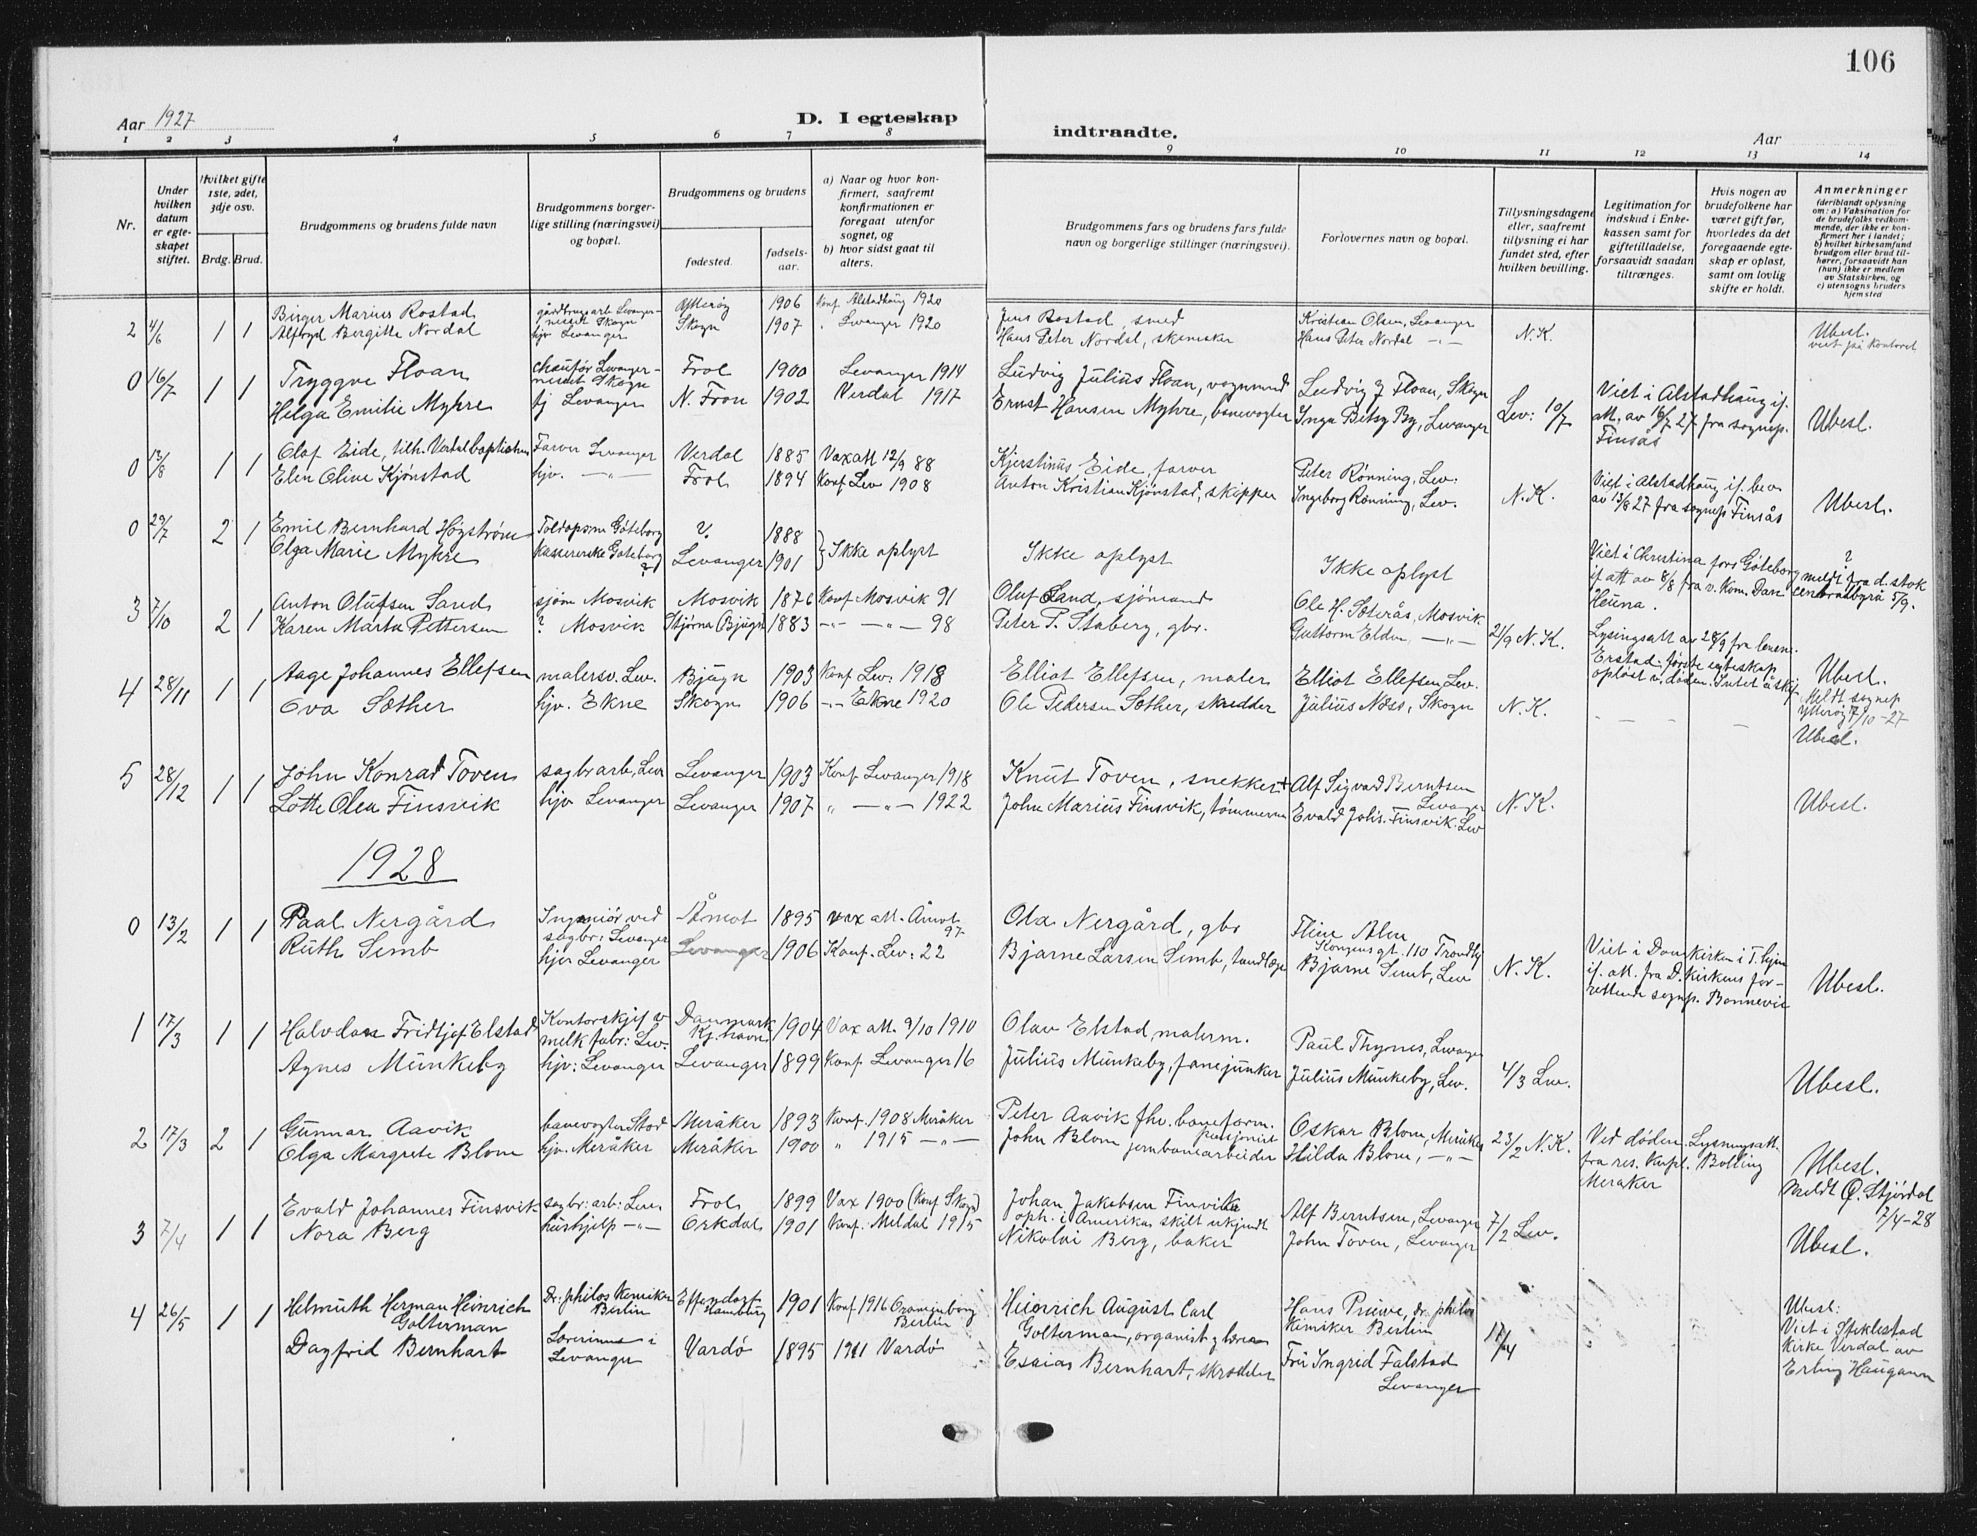 106
Aar 1927
D. I egteskap
indtraadte.
Aar
1 2 3 4 5 6 7 8 9 10 11 12 13 14
Nr.
Under hvilken datum er egteskapet stiftet.
Hvilket gifte 1ste, 2det, 3dje osv.
Brdg. Brud.
Brudgommens og brudens fulde navn
Brudgommens borgerlige stilling (næringsvei) og bopæl.
Brudgommens og brudens
fødested.
fødselsaar.
a) Naar og hvor konfirmert, saafremt konfirmationen er foregaat utenfor sognet, og
b) hvor sidst gaat til alters.
Brudgommens fars og brudens fars fulde navn og borgerlige stillinger (næringsvei).
Forlovernes navn og bopæl.
Tillysningsdagene eller, saafremt tillysning ei har fundet sted, efter hvilken bevilling.
Legitimation for indskud i Enkekassen samt for giftetilladelse, forsaavidt saadan tiltrænges.
Hvis nogen av brudefolkene har været gift før, hvorledes da det foregaaende egteskap er opløst, samt om lovlig skifte er holdt.
Anmerkninger (deriblandt oplysning om: a) Vaksination for de brudefolks vedkommende, der ikke er konfirmert her i landet; b) hvilket kirkesamfund brudgom eller brud tilhører, forsaavidt han (hun) ikke er medlem av Statskirken, og c) utensogns bruders hjemsted
2 4/6 1 1 Birger Marius Rostad gårdbrugsarb Levanger- Ytterøy 1906 Konf Alstadhaug 1920 Jens Rostad, smed Kristian Olsen, Levanger N.K. Ubesl.
Alfryd Bergitte Nordal nesset Skogn hjv Levanger Skogn 1907 " Levanger 1920 Hans Peter Nordal, skomaker Hans Peter Nordal - - viet på kontoret
0 16/7 1 1 Tryggve Floan chaufør Levanger- Frol 1900 Levanger 1914 Ludvig Julius Floan, vognmand Ludvig J Floan, Skogn Lev: 10/7 Viet i Alstadhaug if. Ubesl.
Helga Emilie Myhre nesset Skogn hj Levanger N. Fron 1902 Verdal 1917 Ernst Hansen Myhre, banevogter Inga Betsy By, Levanger att. av 16/7 27 fra sognep. Finsås
0 12/8 1 1 Olaf Eide, tilh. Verdal baptistmen Farver Levanger Verdal 1885 Vax att 12/9 88 Kjerstinus Eide, farver Peter Rønning, Lev. N.K. Viet i Alstadhaug if. bev Ubesl.
Elen Oline Kjønstad hjv. - " - Frol 1894 Konf Lev 1908 Anton Kristian Kjønstad, skipper Ingeborg Rønning, Lev. av 13/8 27 fra sognep Finsås
0 29/7 2 1 Emil Bernhard Høgstrøm Toldopsm Göteborg ?. 1888 } Ikke oplyst Ikke oplyst Ikke oplyst Viet i Christina förs Göteborg ? meldt fra d. stat
Olga Marie Myhre kassererske Göteborg ? Levanger 1901 if att av 8/8 fra v. Kom. Dan centralbyrå 5/9.
Heuna.
3 7/10 2 1 Anton Olufsen Sand sjøm Mosvik Mosvik 1876 Konf Mosvik 91 Oluf Sand, sjömand Ole H. Sæterås, Mosvik 21/9 N.K. Lysingsatt av 28/9 fra lensm. Ubesl.
Karen Marta Pettersen ? Mosvik Stjørna Bjugn 1883 -"- -"- 98 Peter P. Staberg, gbr. Guttorm Elden -"- Erstad. første egteskap opløst v. døden. Intet å skif. Meldt sognep Ytterøy 7/10-27
4 28/11 1 1 Aage Johannes Ellefsen malersv. Lev. Bjugn 1903 Konf Lev. 1918 Elliot Ellefsen, maler Elliot Ellefsen Lev. N.K. - - - - Ubesl.
Eva Sæther hjv. Ekne Skogn 1906 -"- Ekne 1920 Ole Pedersen Sæther, skredder Julius Næss, Skogn
5 28/12 1 1 John Konrad Toven sagbr arb, Lev Levanger 1903 Konf Levanger 1918 Knut Toven, snekker + Alf Sigvad Berntsen Levanger N.K. Ubesl.
Lotte Olea Finsvik hjv Levanger Levanger 1907 " -"- 1922 John Marius Finsvik, tømmerm Evald Johs. Finsvik. Lev
1928
0 13/2 1 1 Paal Nergård Ingeniör ved Åmot 1895 vax att. Åmot 97. Ola Nergård, gbr Fline Alm N.K. Viet i Domkirken i T.hjem Ubesl.
Ruth Semb sagbr: Levanger hjv Levanger Levanger 1906 Konf. Lev: 22 Bjarne Larsen Semb, tandlæge Kongensgt. 110 Trondhj Bjarne Semb, Lev if. att. fra D.kirkens forrettende sognp. Bonnevie
1 17/3 1 1 Halvdan Fridtjof Elstad Kontorskjef v Danmark Kj.havn 1904 Vax att 9/10 1910 Olav Elstad, malerm. Paul Thynes, Levanger 4/3 Lev. Ubesl.
Agnes Munkeby melk fabr: Lev. hjv: Levanger Levanger 1899 Konf Levanger 16 Julius Munkeby, fanejunker Julius Munkeby, Lev.
2 17/3 2 1 Gunnar Aavik banevogter Stod Meråker 1893 Konf. 1908 Meråker Peter Aavik fhv. baneform. Oskar Blom, Meråker 23/2 N.K. Ved döden. Lysningsatt. Ubesl.
Olga Margrete Blom hjv. Meråker Meråker 1900 " 1915 -"- John Blom pensjonist jernbanearbeider Hilda Blom, -"- fra res. kapl. Bolling Meraker Meldt Ø. Stjørdal 7/4-28
3 7/4 1 1 Evald Johannes Finsvik sagbr: arb: Lev Frol 1899 Vax 1900 (Konf Skogn) Johan Jakobsen Finvik oph. i Amerika skilt ukjendt Alf Berntsen, Levanger 7/2 Lev. Ubesl.
Nora Berg hushjelp -"- Orkdal 1901 Konf. Meldal 1915 Nikolai Berg, baker John Toven, Levanger
4 26/5 1 1 Helmuth Herman Heinrich Golterman Dr: philos Kemiker Berlin Effendorf Hamburg 1901 Konf 1916 Oranienborg Berlin Heinrich August Carl Golterman, organist g lærer Hans Pruwe, dr. philos kemiker Berlin 17/4 Ubesl:
Dagfrid Bernhart Lærerinne i Levanger Vardø 1895 1911 Vardö Esaias Bernhart, skrædder Fru Ingrid Falstad Levanger Viet i Stiklestad Kirke Verdal av Erling Haugann